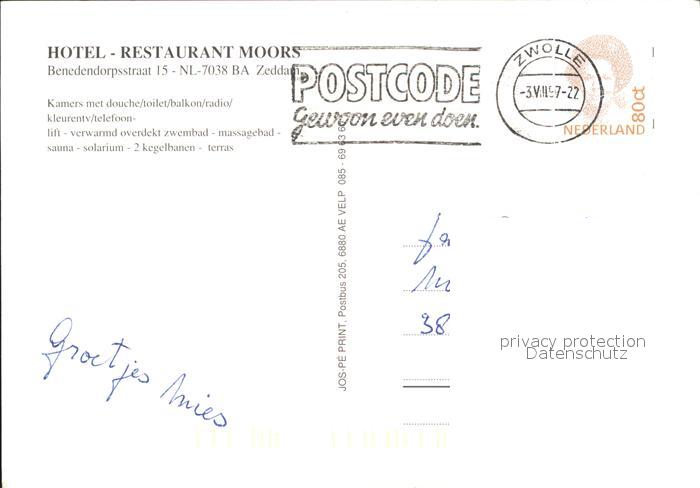 HOTEL - RESTAURANT MOORS
Benedendorpsstraat 15 - NL-7038 BA Zeddam
Kamers met douche/toilet/balkon/radio/
kleurentv/telefoon-
lift - verwarmd overdekt zwembad - massagebad -
sauna - solarium - 2 kegelbanen - terras
POSTCODE
Gewoon even doen.
ZWOLLE
-3.VIII.97-22
80ct
NEDERLAND
JOS-PÉ PRINT, Postbus 205, 6880 AE VELP 085 - 69 63 6
38
privacy protection
Datenschutz
Groetjes Mies